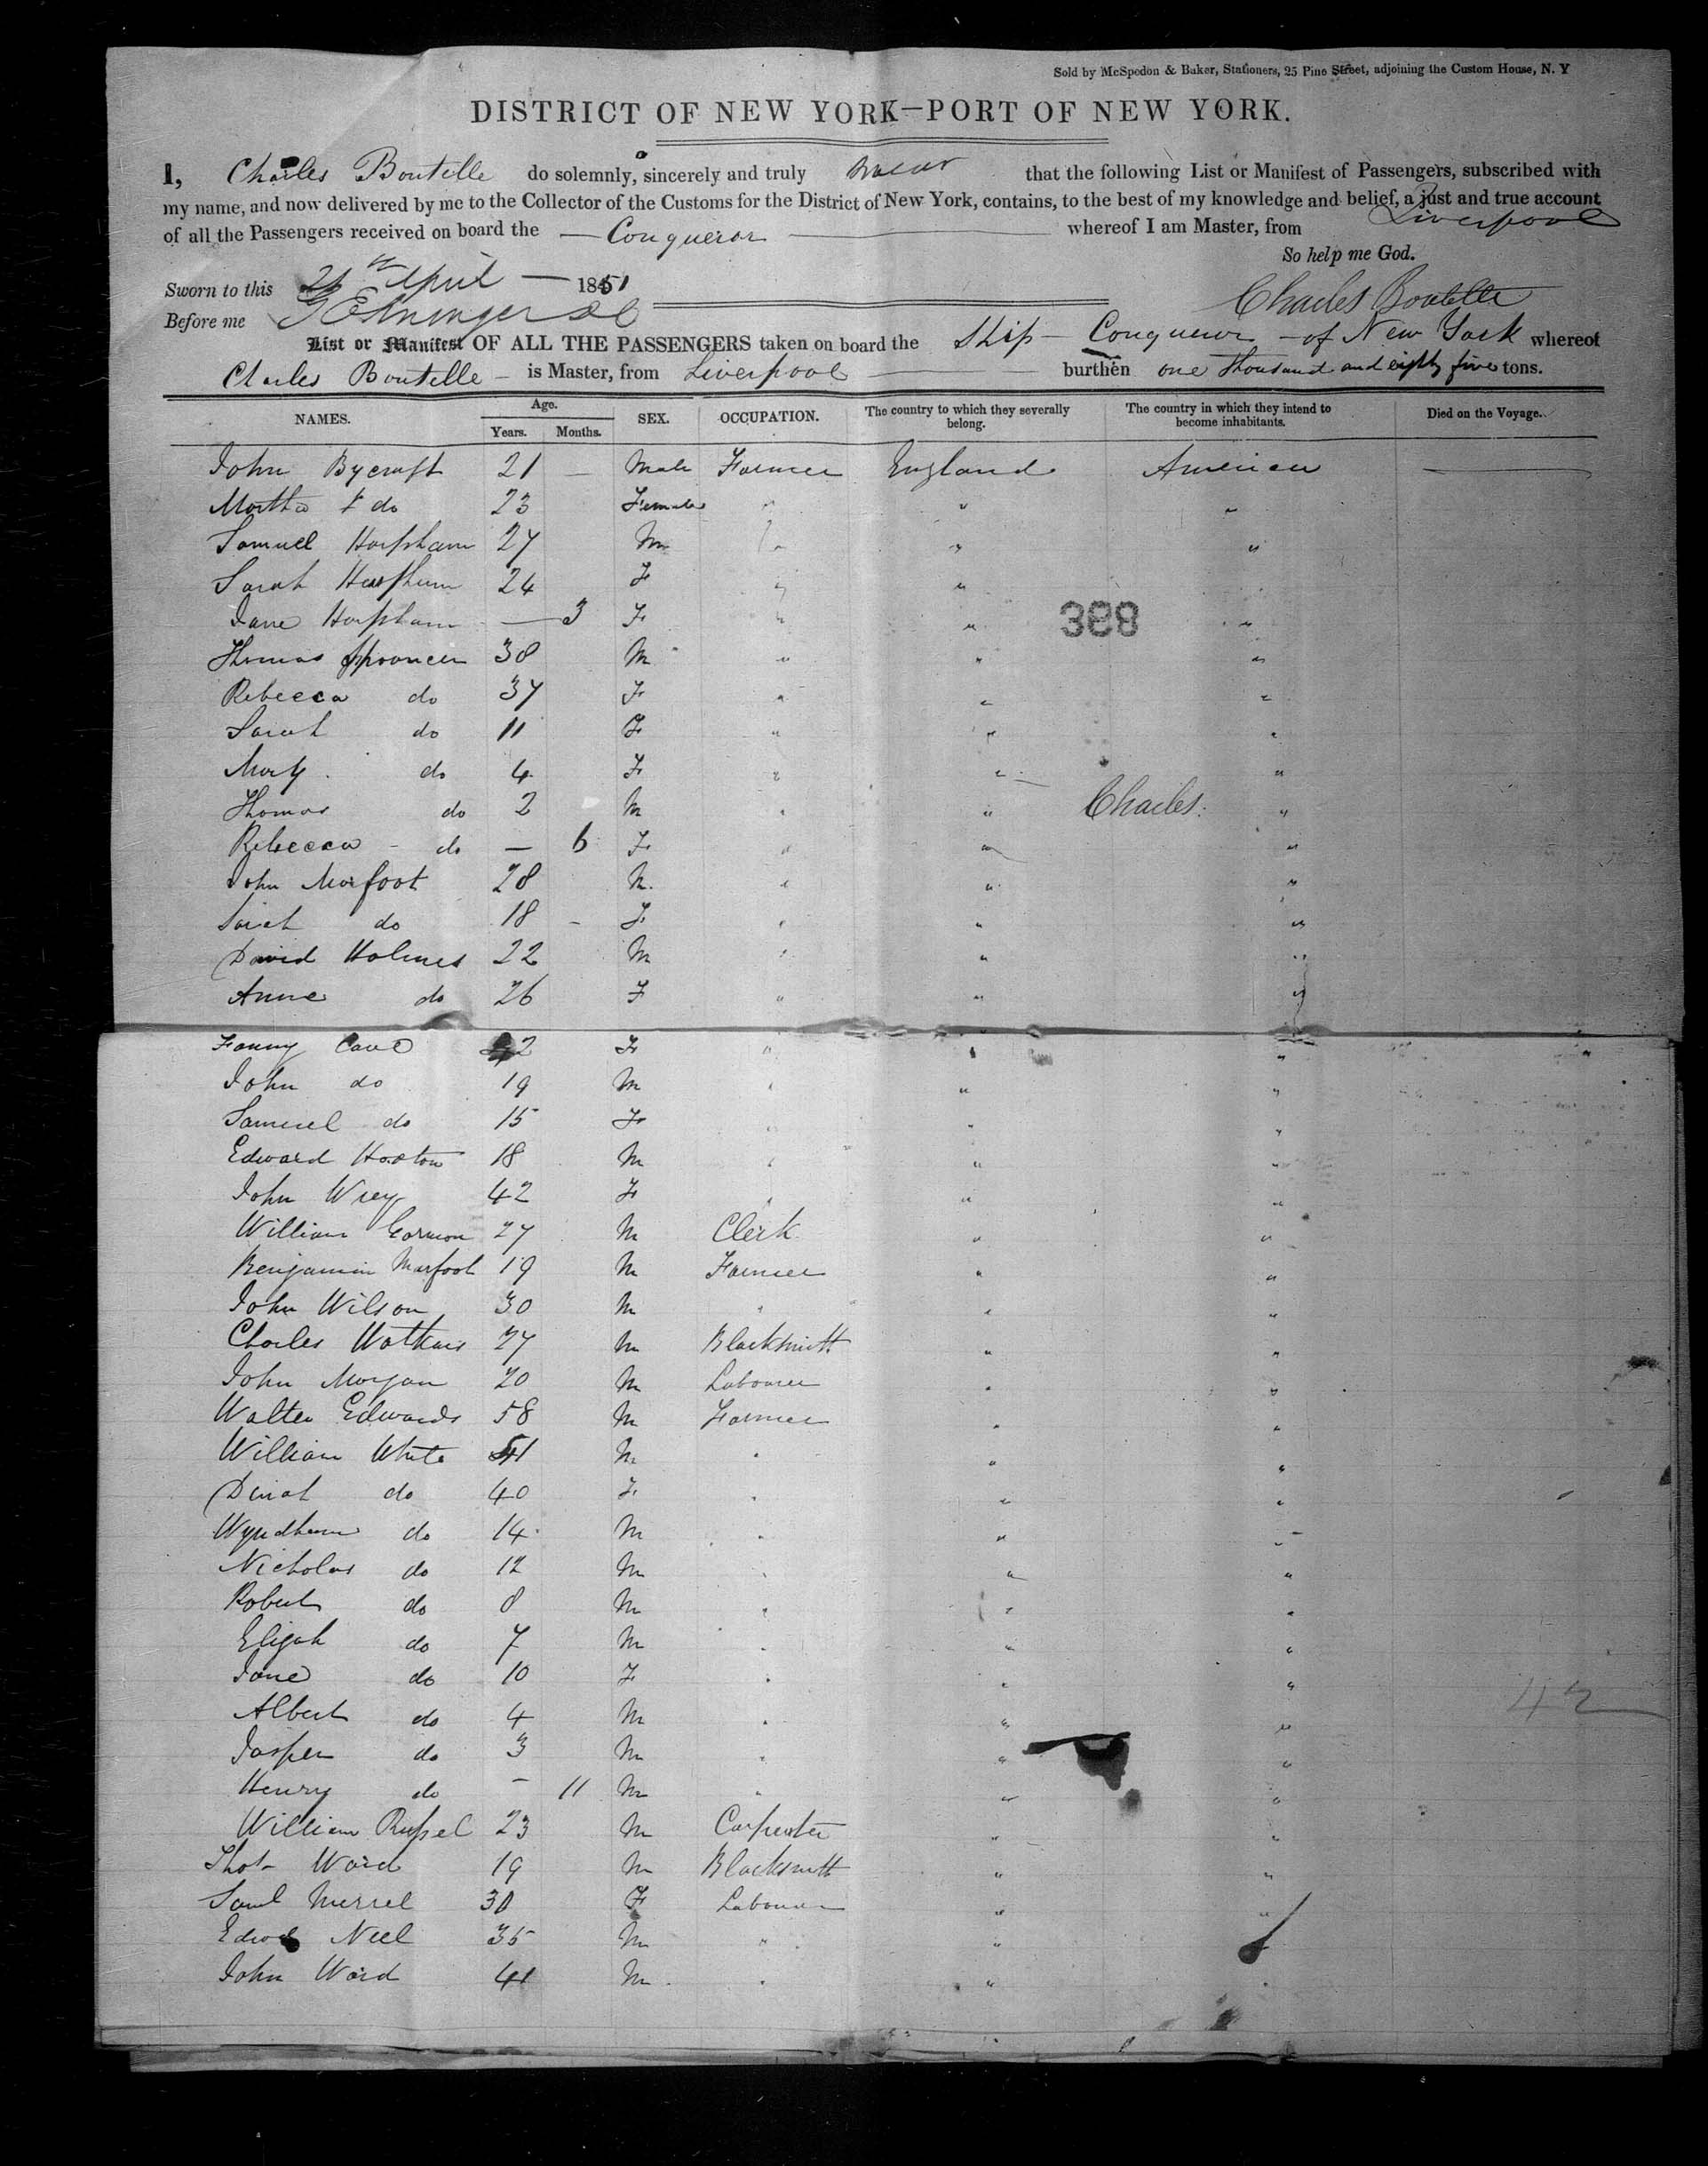 Sold by McSpedon & Baker, Stationers, 25 Pine Street, adjoining the Custom House, N. Y
DISTRICT OF NEW YORK—PORT OF NEW YORK.
I, Charles Boutelle do solemnly, sincerely and truly swear that the following List or Manifest of Passengers, subscribed with
my name, and now delivered by me to the Collector of the Customs for the District of New York, contains, to the best of my knowledge and belief, a just and true account
of all the Passengers received on board the — Conqueror — whereof I am Master, from Liverpool
So help me God.
Sworn to this April — 1851
Charles Boutelle
Before me
List or Manifest OF ALL THE PASSENGERS taken on board the Ship — Conqueror — of New York whereof
Charles Boutelle — is Master, from Liverpool — burthen one thousand and eighty five tons.
NAMES. Age. Years. Months. SEX. OCCUPATION. The country to which they severally belong. The country in which they intend to become inhabitants. Died on the Voyage.
John Bycroft 21 — Male Farmer England America —
Martha do 23 Female " " "
Samuel Harpham 27 M " " "
Sarah Harpham 24 F " "
Jane Harpham — 3 F " " "
388
Thomas 38 M " " "
Rebecca do 37 F " " "
Sarah do 11 F " " "
Mary do 4 F " " "
Thomas do 2 M " " Charles "
Rebecca - do — 6 F " " "
John Marfoot 28 M " " "
Sarah do 18 - F " " "
David Holmes 22 M " " "
Anne do 26 F " " "
Fanny Cave 42 F " " "
John do 19 M " " "
Samuel do 15 F " " "
Edward Hooton 18 M " " "
John Wrey 42 F " " "
William Gorman 27 M Clerk " "
Benjamin Marfoot 19 M Farmer " "
John Wilson 30 M " " "
Charles Watkins 27 M Blacksmith " "
John Morgan 20 M Labourer " "
Walter Edwards 58 M Farmer " "
William White M " " "
Dinah do 40 F " " "
Wyndham do 14 M " " "
Nicholas do 12 M " " "
Robert do 8 M " " "
Elijah do 7 M " " "
Jane do 10 F " " "
42
Albert do 4 M " " "
Jasper do 3 M " " "
Henry do — 11 M " " "
William Russel 23 M Carpenter " "
Thos Ward 19 M Blacksmith " "
Saml Merrel 30 F Labourer " "
Edwd Neel 35 M " " "
John Ward 41 M " " "